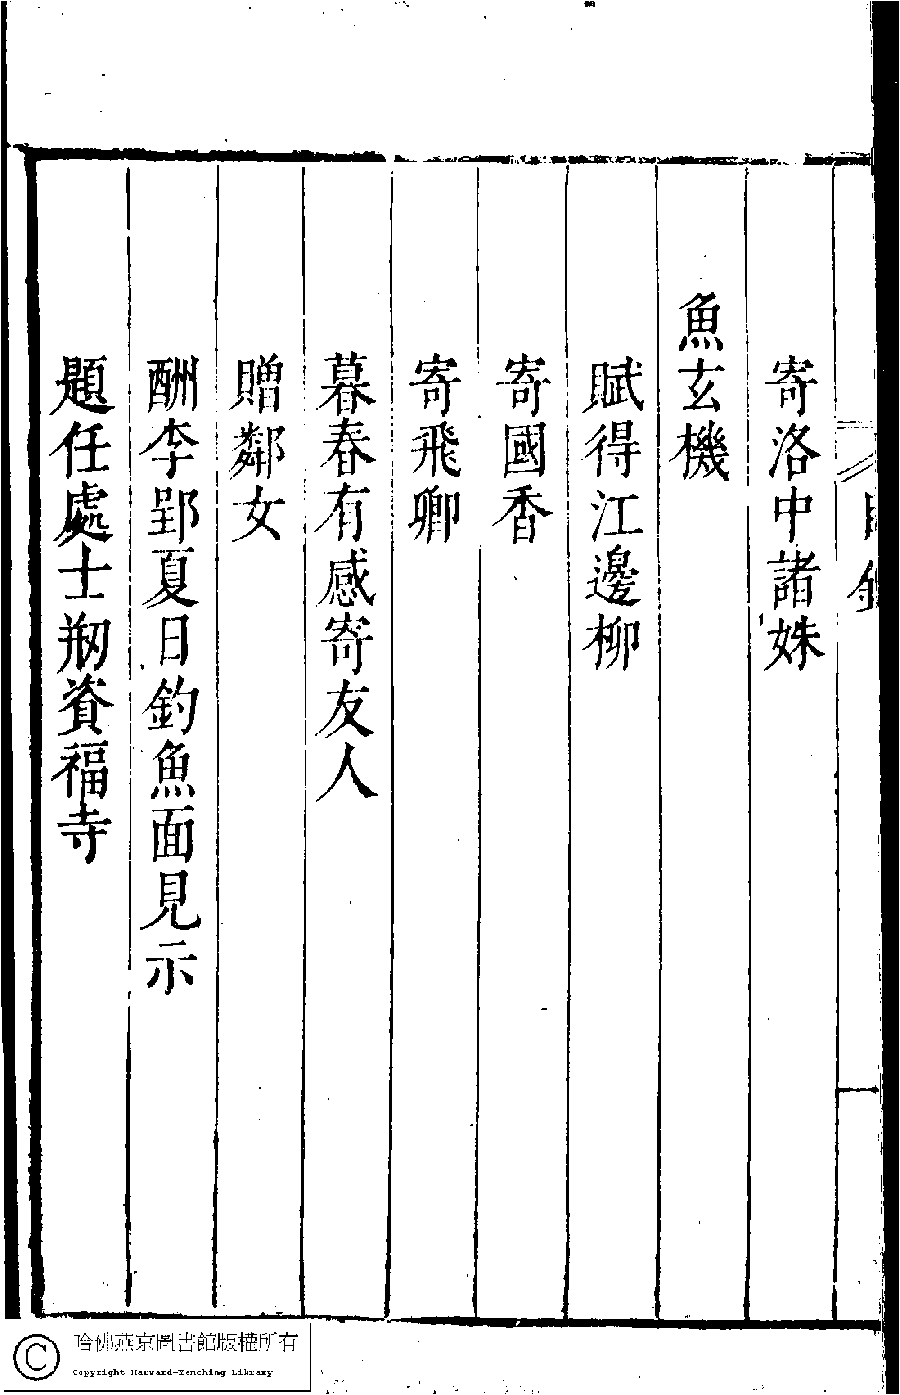 目錄
寄洛中諸姝
魚玄機
賦得江邊柳
寄國香
寄飛卿
暮春有感寄友人
贈鄰女
酬李郢夏日釣魚面見示
題任處士刱資福寺
哈佛燕京圖書館版權所有
Copyright Harvard-Yenching Library